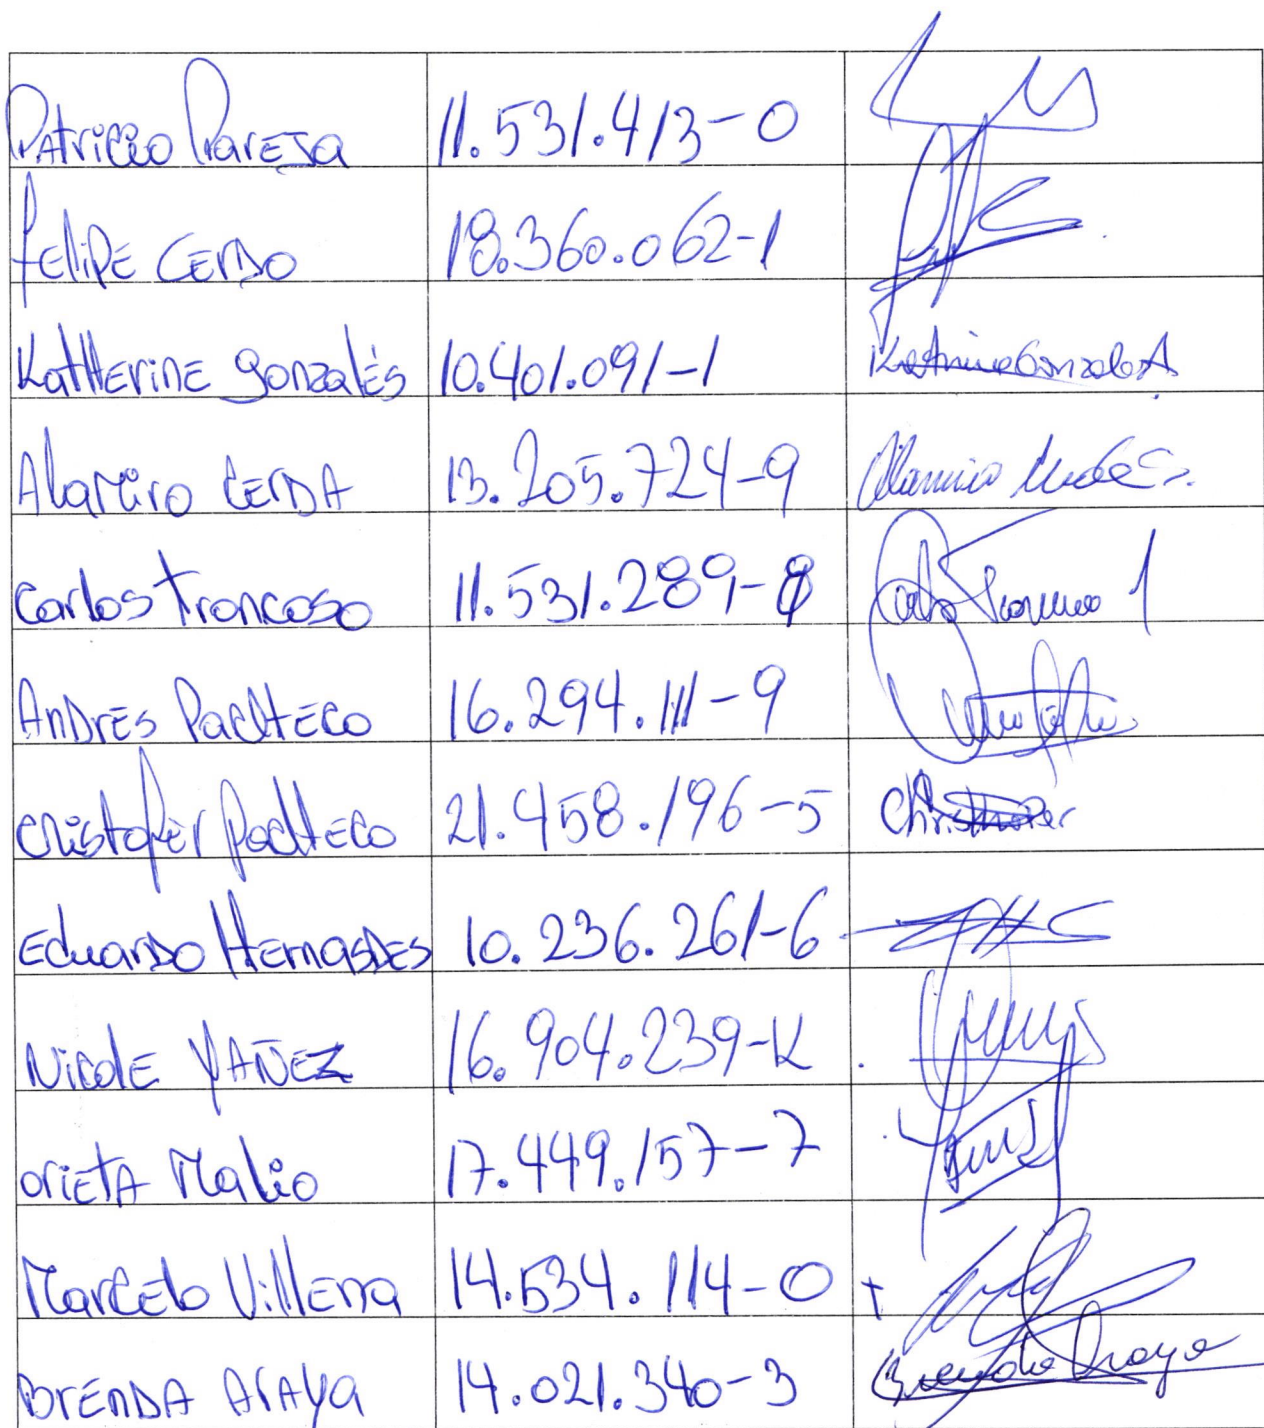 Patricio Pareja 11.531.413-0
Felipe Cerda 18.360.062-1
Katherine Gonzalés 10.401.091-1 Katherine Gonzalez A
Alamiro Cerda 13.205.724-9 Alamiro
Carlos Troncoso 11.531.289-8 Carlos Troncoso
Andrés Pacheco 16.294.111-9
Cristofer Pacheco 21.458.196-5 Christofer
Eduardo Hernasdes 10.236.261-6
Nicole Yañez 16.904.239-K
Orieta 17.449.157-7
Marcelo Villena 14.534.114-0
Brenda Araya 14.021.340-3 Brenda Araya